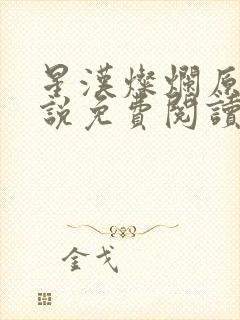 星漢燦爛原
說免費閱讀
金戈